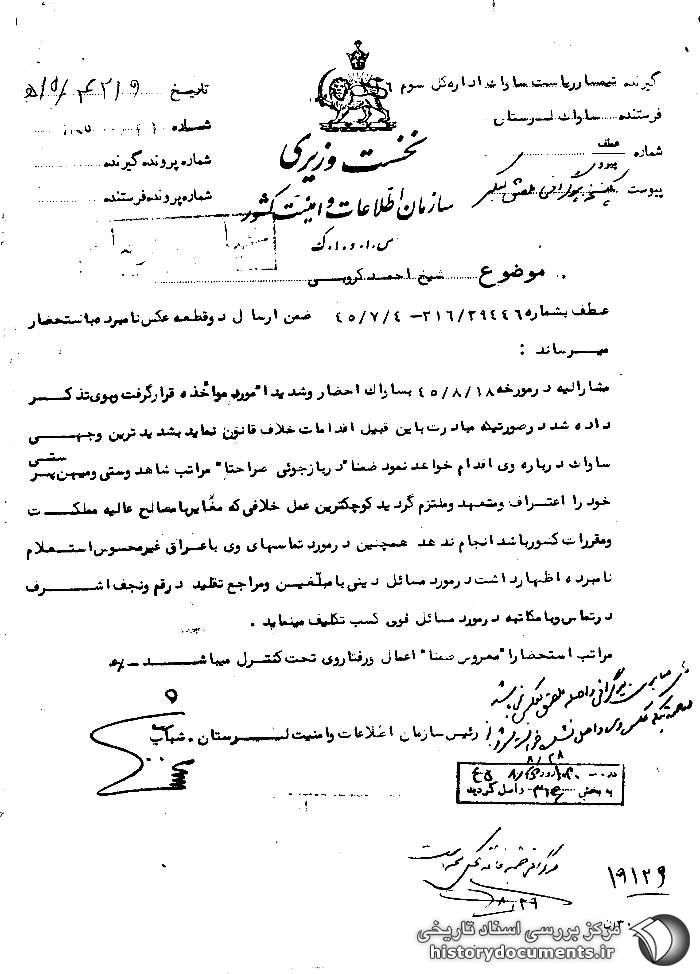 گیرنده تیمسار ریاست ساواک اداره کل سوم
فرستنده ساواک لرستان
شماره
عطف
پیروی
پیوست
تاریخ
شماره
شماره پرونده گیرنده
شماره پرونده فرستنده
نخست وزیری
سازمان اطلاعات و امنیت کشور
س.ا.و.ا.ک
موضوع شیخ احمد کروبی
عطف بشماره ۳۱۶/۲۹۴۴۶ - ۴۵/۷/۴ ضمن ارسال دو قطعه عکس نامبرده باستحضار
میرساند :
مشارالیه در مورخه ۴۵/۸/۱۸ بساواک احضار وشدیدا" مورد مواخذه قرار گرفت وبوی تذکر
داده شد در صورتیکه مبادرت باین قبیل اقدامات خلاف قانون نماید بشدید ترین وجهی
ساواک درباره وی اقدام خواهد نمود ضمنا" در بازجوئی صراحتا" مراتب شاهدوستی ومیهن پرستی
خود را اعتراف ومتعهد وملتزم گردید کوچکترین عمل خلافی که مغایر بامصالح عالیه مملکت
ومقررات کشور باشد انجام ندهد همچنین در مورد تماسهای وی با عراق غیر محسوس استعلام
نامبرده اظهار داشت در مورد مسائل دینی با مبلغین ومراجع تقلید در قم ونجف اشرف
در تماس وبا مکاتبه در مورد مسائل فوق کسب تکلیف مینماید .
مراتب استحضارا" معروض ضمنا" اعمال ورفتار وی تحت کنترل میباشد
رئیس سازمان اطلاعات وامنیت لرستان . شهاب
۸/۲۸
به بخش ۳۱۶ واصل گردید
۸/۲۹
۱۹۱۲۹
مرکز بررسی اسناد تاریخی
historydocuments.ir